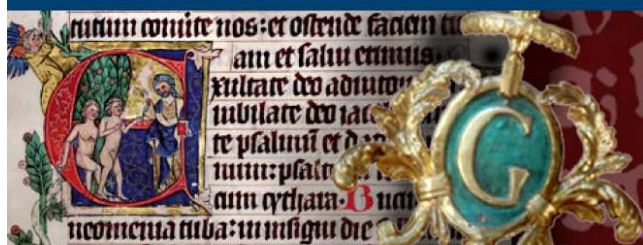 tutum conuerte nos: et ostende faciem tu
am et salui erimus
Exultate deo adiuto
iubilate deo iaco
te psalmū et d
num: psalt
cum cythara. Buci
neomenia tuba: in insigni die
G